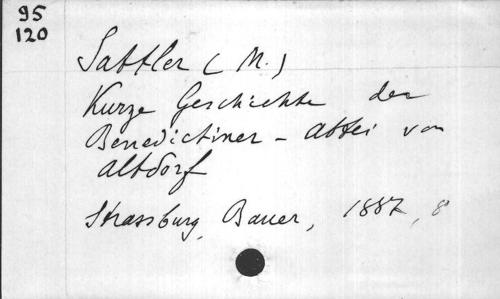 95
120
Sattler (M.)
Kurze Geschichte der
Benedictiner - Abtei von
Altdorf
Strassburg, Bauer, 1887, 8